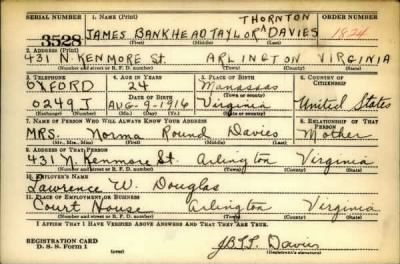 SERIAL NUMBER 1. Name (Print) ORDER NUMBER
THORNTON
3528 JAMES BANKHEAD TAYLOR ^ DAVIES 1824
(First) (Middle) (Last)
2. Address (Print)
431 N. KENMORE St. ARLINGTON VIRGINIA
(Number and street or R. F. D. number) (Town) (County) (State)
3. Telephone 4. Age in Years 5. Place of Birth 6. Country of Citizenship
OXFORD 24 Manassas
Date of Birth (Town or county)
0249 J AUG-9-1916 Virginia United States
(Exchange) (Number) (Mo.) (Day) (Yr.) (State or country)
7. Name of Person Who Will Always Know Your Address 8. Relationship of That Person
MRS. Norma Round Davies Mother
(Mr., Mrs., Miss) (First) (Middle) (Last)
9. Address of That Person
431 N. Kenmore St. Arlington Virginia
(Number and street or R. F. D. number) (Town) (County) (State)
10. Employer's Name
Lawrence W. Douglas
11. Place of Employment or Business
Court House Arlington Virginia
(Number and street or R. F. D. number) (Town) (County) (State)
I Affirm That I Have Verified Above Answers and That They Are True.
REGISTRATION CARD
D. S. S. Form 1 J.B.T.T. Davies
(Registrant's signature)